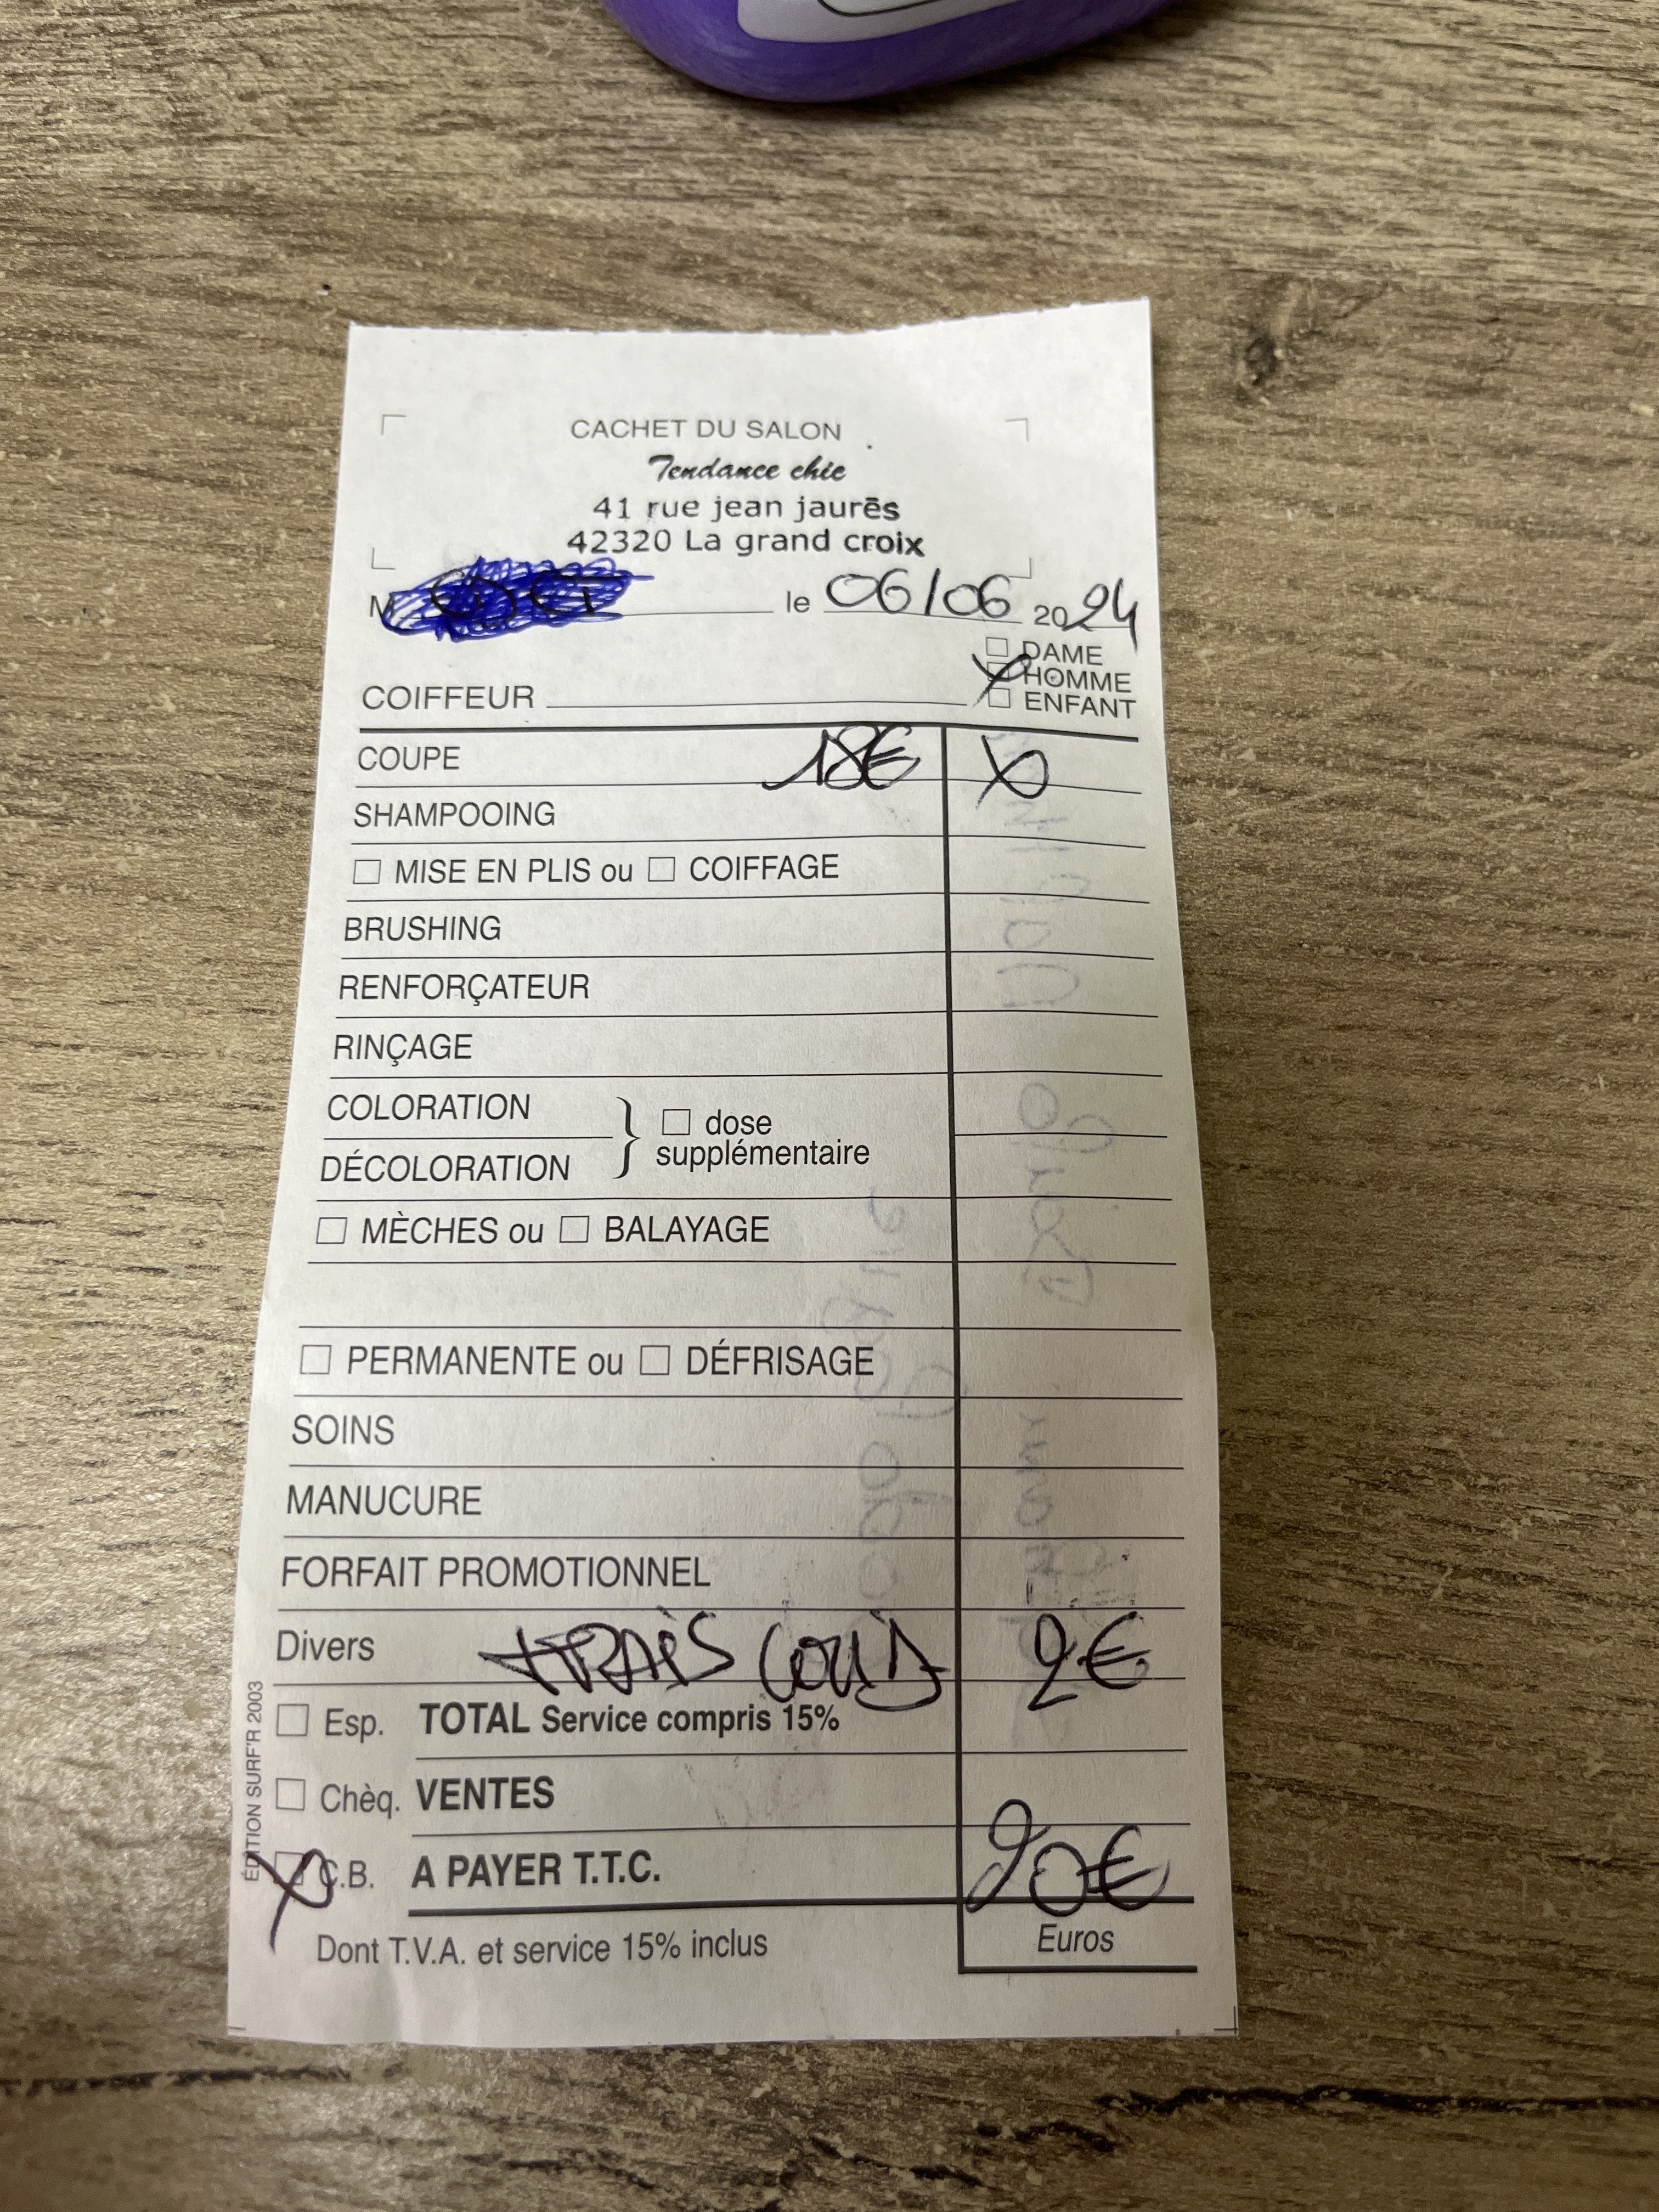 CACHET DU SALON
Tendance chic
41 rue jean jaurēs
42320 La grand croix
M le 06/06 2024
DAME
HOMME
ENFANT
COIFFEUR
COUPE 18€ X
SHAMPOOING
MISE EN PLIS ou COIFFAGE
BRUSHING
RENFORÇATEUR
RINÇAGE
COLORATION
dose
supplémentaire
DÉCOLORATION
MÈCHES ou BALAYAGE
PERMANENTE ou DÉFRISAGE
SOINS
MANUCURE
FORFAIT PROMOTIONNEL
Divers FRAIS 2€
Esp. TOTAL Service compris 15%
Chèq. VENTES
C.B. A PAYER T.T.C. 20€
Dont T.V.A. et service 15% inclus Euros
ÉDITION SURF'R 2003